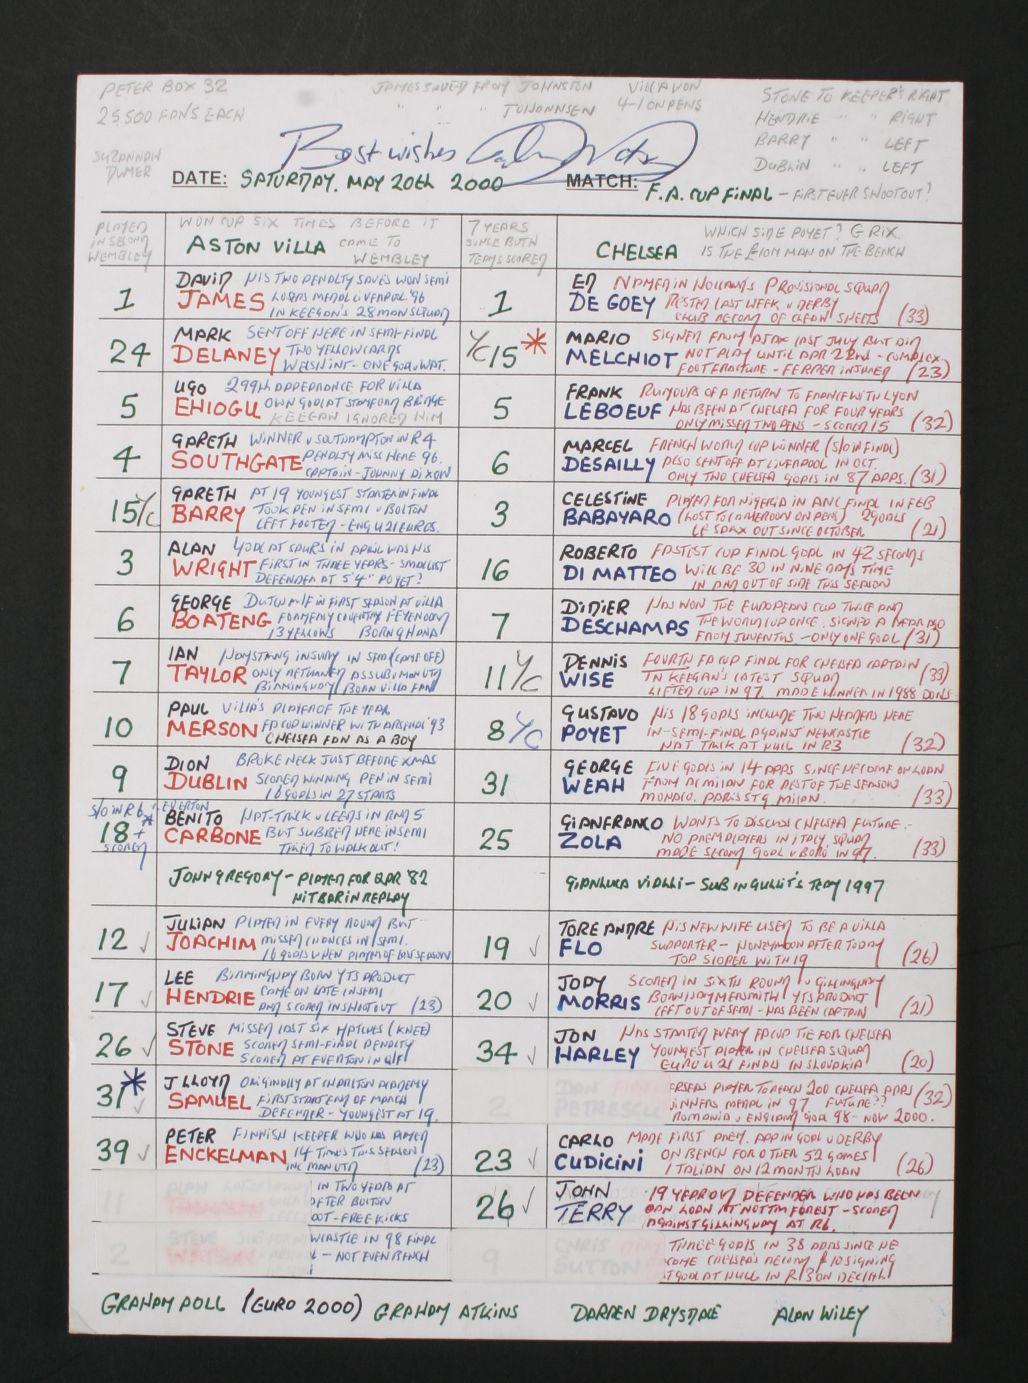 PETER BOX 32
25,500 FANS EACH
JAMES SAVED FROM JOHNSTON VILLA WON
" " " 4-1 ON PENS
STONE TO KEEPER'S RIGHT
HENDRIE " " RIGHT
BARRY " " LEFT
DUBLIN " " LEFT
Best wishes
DATE: SATURDAY. MAY 20th 2000 MATCH: F.A. CUP FINAL – FIRST EVER SHOOTOUT?
PLAYED IN SECOND WEMBLEY
WON CUP SIX TIMES BEFORE IT CAME TO WEMBLEY
ASTON VILLA
7 YEARS SINCE BOTH TEAMS SCORED
WHICH SIDE POYET? G RIX
CHELSEA IS THE £10M MAN ON THE BENCH
1 DAVID JAMES HIS TWO PENALTY SAVES WON SEMI
LOSERS MEDAL LIVERPOOL '96
IN KEEGAN'S 28 MAN SQUAD
1 ED DE GOEY NAMED IN HOLLAND'S PROVISIONAL SQUAD
RESTED LAST WEEK v DERBY
CLUB RECORD OF CLEAN SHEETS (33)
24 MARK DELANEY SENT OFF HERE IN SEMI-FINAL
TWO YELLOW CARDS
WELSH INT - ONE GOAL v WAT.
Y/C 15 * MARIO MELCHIOT SIGNED FROM AJAX LAST JULY BUT DID
NOT PLAY UNTIL APR 22nd - COMPLEX
FOOT FRACTURE - FERRER INJURED (23)
5 UGO EHIOGU 299th APPEARANCE FOR VILLA
OWN GOAL AT STAMFORD BRIDGE
KEEGAN IGNORED HIM
5 FRANK LEBOEUF RUMOURS OF A RETURN TO FRANCE WITH LYON
HAS BEEN AT CHELSEA FOR FOUR YEARS
ONLY MISSED TWO PENS - SCORED 15 (32)
4 GARETH SOUTHGATE WINNER v SOUTHAMPTON IN R4
PENALTY MISS HERE 96.
CAPTAIN - JOHNNY DIXON
6 MARCEL DESAILLY FRENCH WORLD CUP WINNER (S/O IN FINAL)
ALSO SENT OFF AT LIVERPOOL IN OCT.
ONLY TWO CHELSEA GOALS IN 87 APPS. (31)
15 Y/C GARETH BARRY AT 19 YOUNGEST STARTER IN FINAL
TOOK PEN IN SEMI v BOLTON
LEFT FOOTED - ENG U21 EUROS.
3 CELESTINE BABAYARO PLAYED FOR NIGERIA IN ANC FINAL IN FEB
(LOST TO CAMEROON ON PENS) 2 GOALS
LE SAUX OUT SINCE OCTOBER (21)
3 ALAN WRIGHT GOAL AT SPURS IN APRIL WAS HIS
FIRST IN THREE YEARS - SMALLEST
DEFENDER AT 5'4" POYET?
16 ROBERTO DI MATTEO FASTEST CUP FINAL GOAL IN 42 SECONDS
WILL BE 30 IN NINE DAYS TIME
IN AND OUT OF SIDE THIS SEASON
6 GEORGE BOATENG DUTCH M/F IN FIRST SEASON AT VILLA
FORMERLY COVENTRY FEYENOORD
13 YELLOWS BORN GHANA
7 DIDIER DESCHAMPS HAS WON THE EUROPEAN CUP TWICE AND
THE WORLD CUP ONCE. SIGNED A YEAR AGO
FROM JUVENTUS - ONLY ONE GOAL (31)
7 IAN TAYLOR HAMSTRING INJURY IN SEMI (CAME OFF)
ONLY RETURNED AS SUB v MAN UTD
BIRMINGHAM BORN VILLA FAN
11 Y/C DENNIS WISE FOURTH FA CUP FINAL FOR CHELSEA CAPTAIN
IN KEEGAN'S LATEST SQUAD (33)
LIFTED CUP IN 97. MADE WINNER IN 1988 DONS
10 PAUL MERSON VILLA'S PLAYER OF THE YEAR
FA CUP WINNER WITH ARSENAL '93
CHELSEA FAN AS A BOY
8 Y/C GUSTAVO POYET HIS 18 GOALS INCLUDE TWO HEADERS HERE
IN SEMI-FINAL AGAINST NEWCASTLE
HAT TRICK AT HULL IN R3 (32)
9 DION DUBLIN BROKE NECK JUST BEFORE XMAS
SCORED WINNING PEN IN SEMI
16 GOALS IN 27 STARTS
31 GEORGE WEAH FIVE GOALS IN 14 APPS SINCE HE CAME ON LOAN
FROM AC MILAN FOR REST OF THE SEASON
MONACO. PARIS ST G MILAN. (33)
S/O IN R6 v EVERTON
18 * + SCORED BENITO CARBONE HAT-TRICK v LEEDS IN RND 5
BUT SUBBED HERE IN SEMI
TRIED TO WALK OUT!
25 GIANFRANCO ZOLA WANTS TO DISCUSS CHELSEA FUTURE.-
NO PREM PLAYERS IN ITALY SQUAD
MADE SECOND GOAL v BORO IN 97. (33)
JOHN GREGORY - PLAYED FOR QPR '82
HIT BAR IN REPLAY
GIANLUCA VIALLI - SUB IN GULLIT'S TEAM 1997
12 ✓ JULIAN JOACHIM PLAYED IN EVERY ROUND BUT
MISSED CHANCES IN SEMI.
16 GOALS WHEN PLAYER OF LAST SEASON
19 ✓ TORE ANDRE FLO HIS NEW WIFE USED TO BE A VILLA
SUPPORTER - HONEYMOON AFTER TODAY
TOP SCORER WITH 19 (26)
17 ✓ LEE HENDRIE BIRMINGHAM BORN YTS PRODUCT
CAME ON LATE IN SEMI
AND SCORED IN SHOOTOUT (23)
20 ✓ JODY MORRIS SCORED IN SIXTH ROUND v GILLINGHAM
BORN HAMMERSMITH YTS PRODUCT
LEFT OUT OF SEMI - HAS BEEN CAPTAIN (21)
26 ✓ STEVE STONE MISSED LAST SIX MATCHES (KNEE)
SCORED SEMI-FINAL PENALTY
SCORED AT EVERTON IN Q/F
34 ✓ JON HARLEY HAS STARTED EVERY FA CUP TIE FOR CHELSEA
YOUNGEST PLAYER IN CHELSEA SQUAD
EURO U21 FINALS IN SLOVAKIA (20)
31 * ✓ J LLOYD SAMUEL ORIGINALLY AT CHARLTON ACADEMY
FIRST START END OF MARCH
DEFENDER - YOUNGEST AT 19.
2 DAN PETRESCU
ERSEAS PLAYER TO REACH 200 CHELSEA APPS
INNERS MEDAL IN 97 FUTURE?? (32)
ROMANIA v ENGLAND GOAL 98 - NOW 2000.
39 ✓ PETER ENCKELMAN FINNISH KEEPER WHO HAS PLAYED
14 TIMES THIS SEASON
INC MAN UTD (23)
23 ✓ CARLO CUDICINI MADE FIRST PREM. APP IN GOAL v DERBY
ON BENCH FOR OTHER 52 GAMES
ITALIAN ON 12 MONTH LOAN (26)
11 ALAN THOMPSON
IN TWO YEARS AT
AFTER BOLTON
OOT - FREE KICKS
26 ✓ JOHN TERRY 19 YEAR OLD DEFENDER WHO HAS BEEN
ON LOAN AT NOTTM FOREST - SCORED
AGAINST GILLINGHAM AT R6.
2 STEVE WATSON
WCASTLE IN 98 FINAL
– NOT EVEN BENCH
9 CHRIS SUTTON
THREE GOALS IN 38 APPS SINCE HE
CAME CHELSEA'S RECORD £10 SIGNING
GOAL AT HULL IN R/3 ON DEC 11th
GRAHAM POLL (EURO 2000) GRAHAM ATKINS DARREN DRYSDALE ALAN WILEY